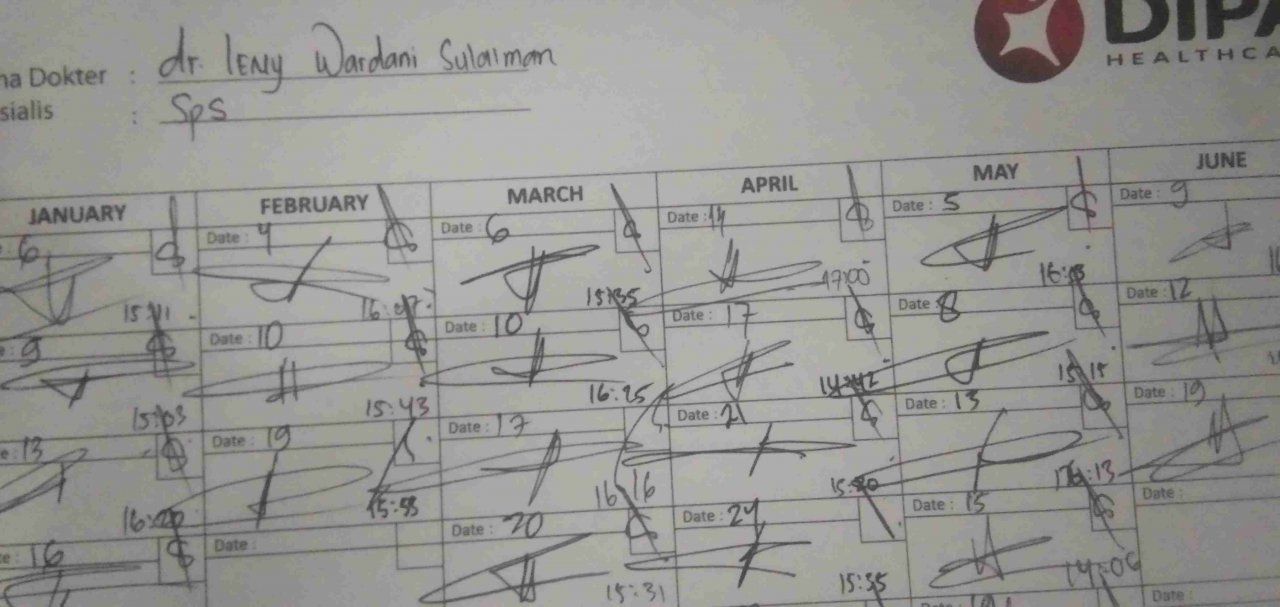 DIPA
HEALTHCA
na Dokter : dr. LENY Wardani Sulaiman
sialis : SpS
JANUARY FEBRUARY MARCH APRIL MAY JUNE
: 6 Date : 4 Date : 6 Date : 14 Date : 5 Date : 9
15:11 16:07 15:35 17:00 16:13
: 9 Date : 10 Date : 10 Date : 17 Date : 8 Date : 12
15:03 15:43 16:25 14:42 15:15
e : 13 Date : 19 Date : 17 Date : 21 Date : 13 Date : 19
16:20 15:58 16 16 15:20 16:13
te : 16 Date : Date : 20 Date : 24 Date : 15 Date :
15:31 15:35 14:06
Date : Date :